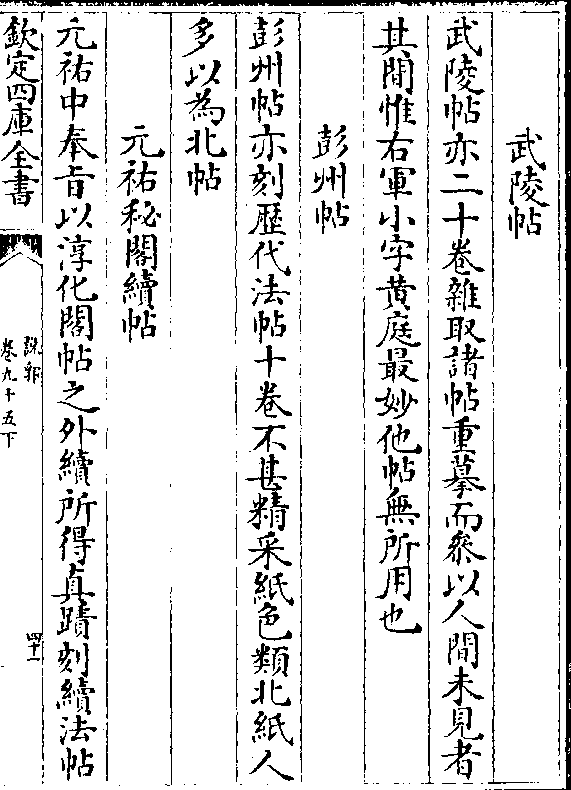 武陵帖
武陵帖亦二十卷雜取諸帖重摹而叅以人間未見者
其間惟右軍小字黄庭最妙他帖無所用也
彭州帖
彭州帖亦刻歴代法帖十卷不甚精采紙色類北紙人
多以為北帖
元祐秘閣續帖
元祐中奉旨以淳化閣帖之外續所得真蹟刻續法帖
欽定四庫全書
説郛
卷九十五下
四十一